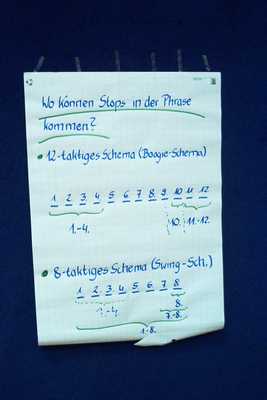 Wo können Stops in der Phrase
kommen?
• 12-taktiges Schema (Boogie-Schema)
1 2 3 4 5 6 7 8 9 10 11 12
1.-4. 10. 11.-12.
• 8-taktiges Schema (Swing-Sch.)
1 2 3 4 5 6 7 8
1.-4. 8.
7.-8.
1.-8.